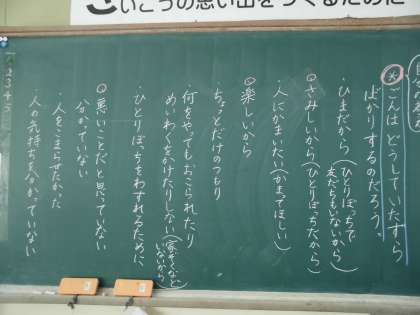 さいこうの思い出をつくるために
ごんはどうしていたずら
ばかりするのだろう。
・ひまだから(ひとりぼっちで
友だちもいないから)
○さみしいから(ひとりぼっちだから)
・人にかまいたい(かまってほしい)
○楽しいから
・ちょっとだけのつもり
・何をやってもおこられたり
めいわくをかけたりしない(家ぞくなど
いないから)
・ひとりぼっちをわすれるために、
○悪いことだと思っていない
分かっていない
・人をこまらせたかった
・人の気持ちを分かっていない